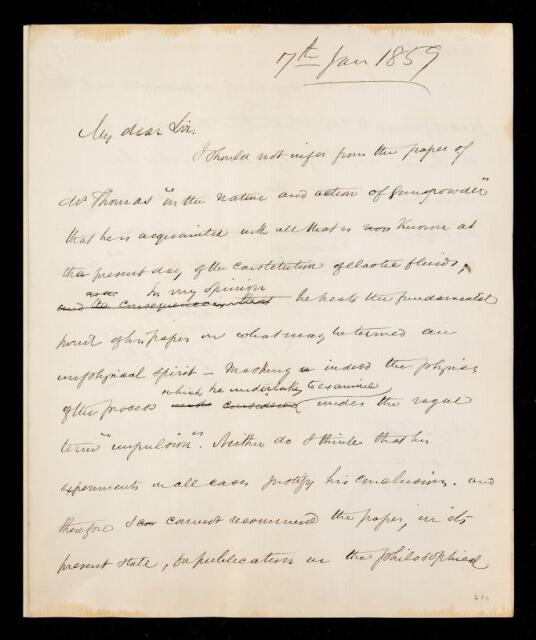 7th Jan 1859
My dear Sir,
I should not infer from the paper of
Mr Thomas "on the nature and action of Gunpowder"
that he is acquainted with all that is now known at
the present day of the constitution of elastic fluids;
In my opinion
and the consequence is that he treats the fundamental
point of his paper in what may be termed an
unphysical spirit – Masking indeed the physics
which he undertakes to examine
of the process considered under the vague
term "impulsion". Neither do I think that his
experiments in all cases justify his conclusions. and
therefore I cannot recommend the paper, in its
present state, for publication in the Philosophical